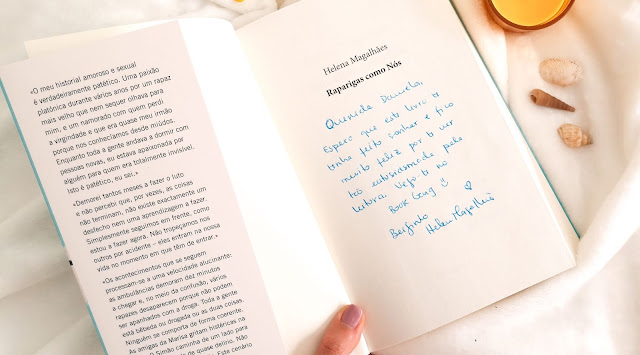 «O meu historial amoroso e sexual
é verdadeiramente patético. Uma paixão
platónica durante vários anos por um rapaz
mais velho que nem sequer olhava para
mim, e um namorado com quem perdi
a virgindade e que era quase meu irmão
porque nos conhecíamos desde miúdos.
Enquanto toda a gente andava a dormir com
pessoas novas, eu estava apaixonada por
alguém para quem era totalmente invisível.
Isto é patético, eu sei.»
«Demorei tantos meses a fazer o luto
e não percebi que, por vezes, as coisas
não terminam, não existe exactamente um
desfecho nem uma aprendizagem a fazer.
Simplesmente seguimos em frente, como
estou a fazer agora. Não tropeçamos nos
outros por acidente – eles entram na nossa
vida no momento em que têm de entrar.»
«Os acontecimentos que se seguem
processam-se a uma velocidade alucinante:
as ambulâncias demoram dez minutos
a chegar e, no meio da confusão, vários
rapazes desaparecem porque não podem
ser apanhados com a droga. Toda a gente
está bêbada ou drogada ou as duas coisas.
Ninguém se comporta de forma coerente.
As amigas da Marisa gritam histéricas na
O Simão caminha de um lado para
de quase delírio. Não
Este cenário
Helena Magalhães
Raparigas como Nós
Querida Daniela,
Espero que este livro te
tenha feito sonhar e fico
muito feliz por te ver
tão entusiasmada pela
leitura. Vejo-te no
Book Gang :) ♡
Beijinho
Helena Magalhães